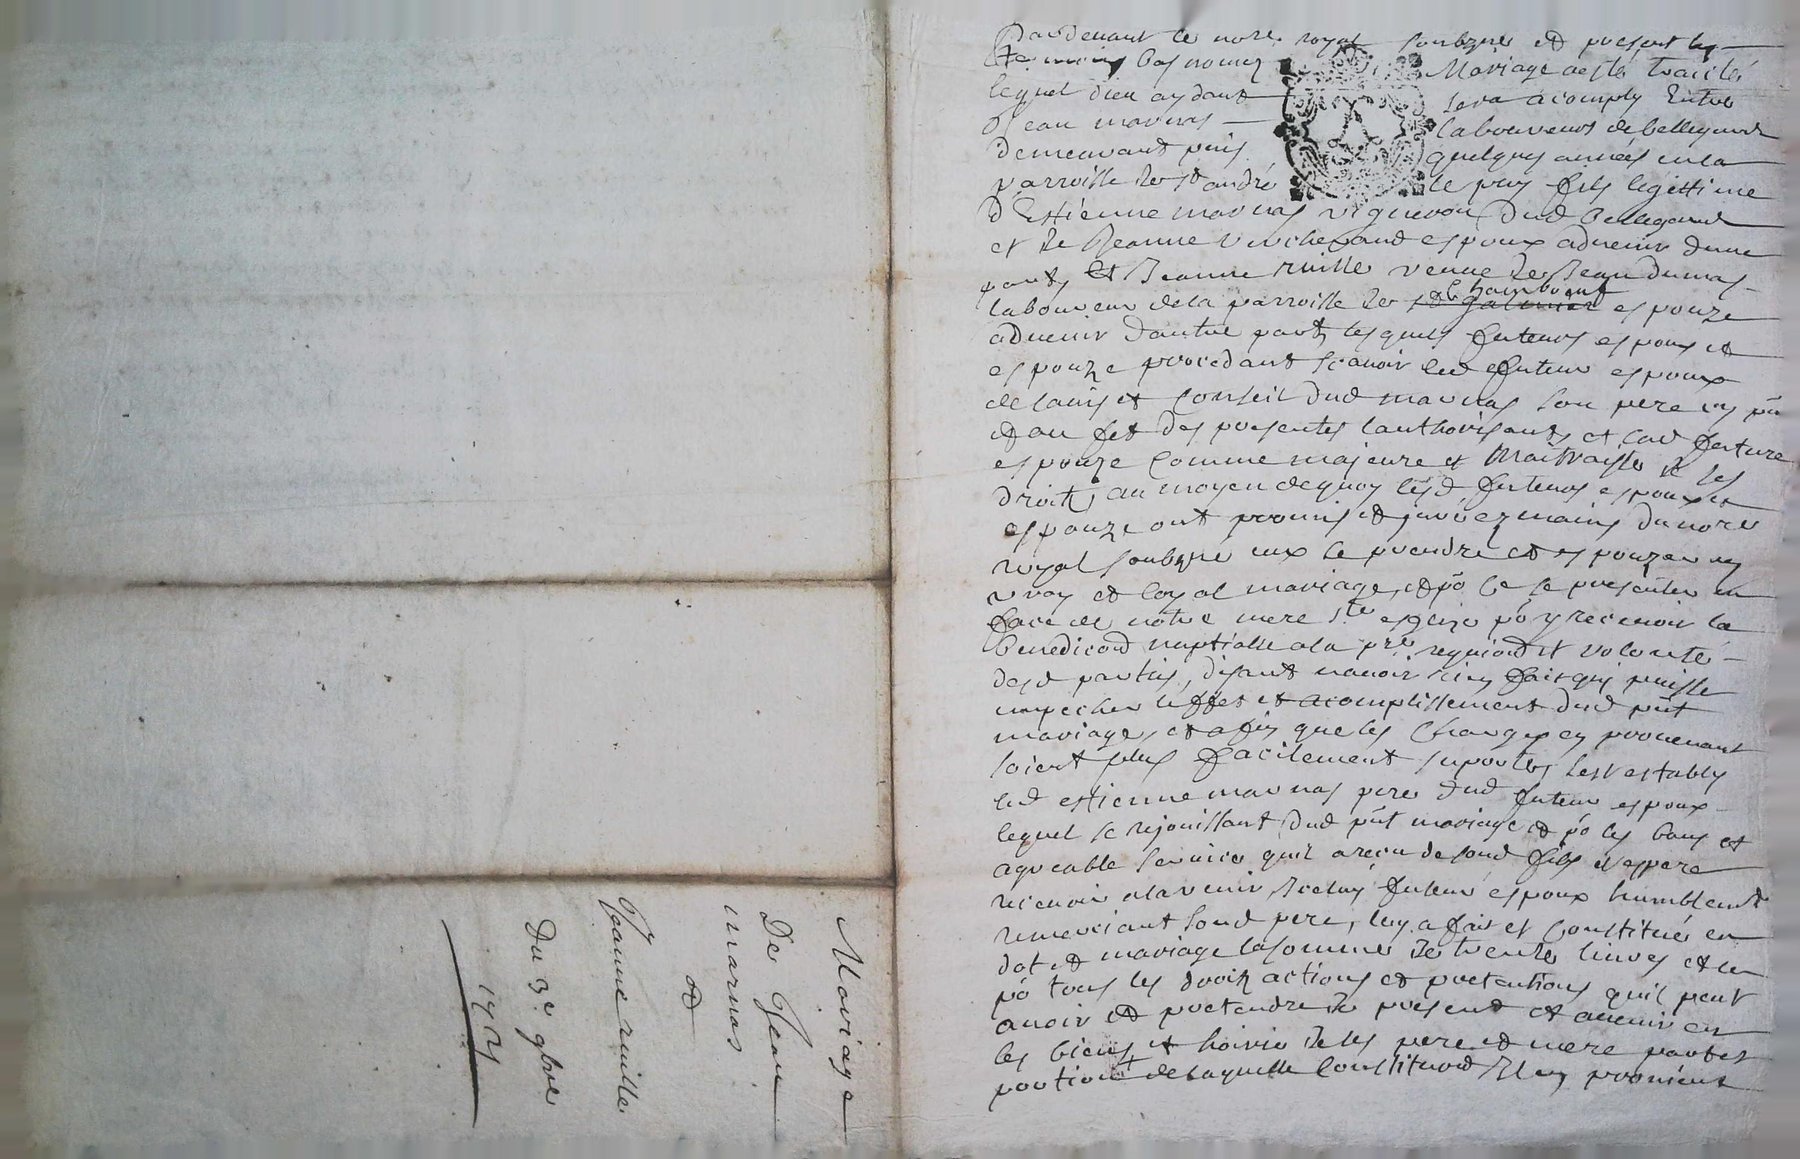 Mariage
De Jean
marnas
et
Jeanne ruille
Du 3e 9bre
Pardevant le nore royal soubzne et present les
temoins bas nomez Mariage a esté traicté
lequel dieu aydant sera acomply Entre
Jean marnas laboureur de bellegarde
demeurant puis quelques années en la
parroisse de st andré le puy fils legittime
d'Estienne marnas vigneron dud Bellegarde
et de Jeanne espoux advenir dune
part, et Jeanne ruille veuve de Jean dumas
laboureur de la parroisse de st galmier chambeuf espouze
advenir dautre part lesquels futeurs espoux et
espouze procedant scavoir led futeur espoux
de ladvis et conseil dud marnas son pere icy pnt
et au fet des presentes lauthorisant, et lad future
espouze comme majeure et maitraisse de ses
droits, au moyen dequoy lesd futeurs espoux et
espouze ont promis et juré ez mains du nore
royal soubzne eux se prendre et espouzer en
vray et loyal mariage, et po ce se presenter en
face de notre mere ste esglize po y recevoir la
benediction nuptialle a la pre requion et volonté
desd parties, disant navoir rien fait qui puisse
empecher leffet et acomplissement dud pnt
mariage, et afin que les charges en provenant
soient plus facilement suportés sest estably
led estienne marnas pere dud futeur espoux
lequel se rejouissant dud pnt mariage et po les bons et
agreable service quil a receu de sond fils et espere
recevoir alavenir, Iceluy futeur espoux humblemt
remerciant sond pere, luy a fait et constitué en
dot et mariage la somme de trente livres et ce
po tous les droits actions et pretentions quil peut
avoir et pretendre de present et advenir en
les biens et hoirie de ses pere et mere portes
portion de laquelle constituon Il en provient